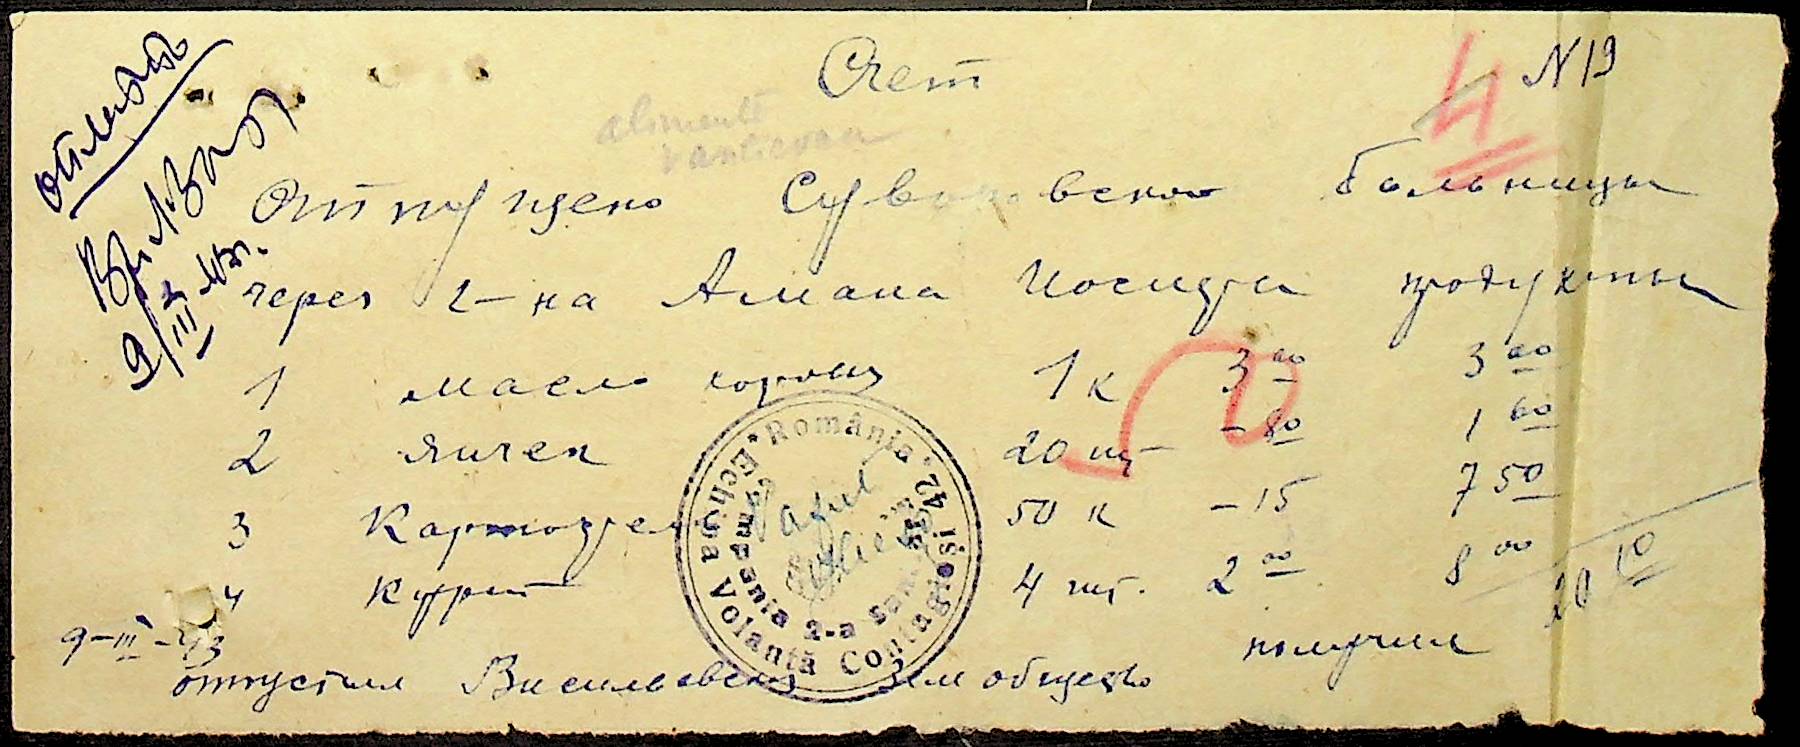 Счет
N 19
4
оплатить
9/III 43г.
alimente
Отпущено Суворовской больницы
через г-на Амана Иосифа продукты
1 масло коровь 1 к 3 00 3 00
2 яичек 20 шт - 80 1 60
3 Картофел 50 к - 15 7 50
4 Курит 4 шт. 2 00 8 00
20 10
9-III-43 получил
отпустил Васильевский Зем общество
România
Echipa Volantă Contagioşi 42
Compania 2-a san.